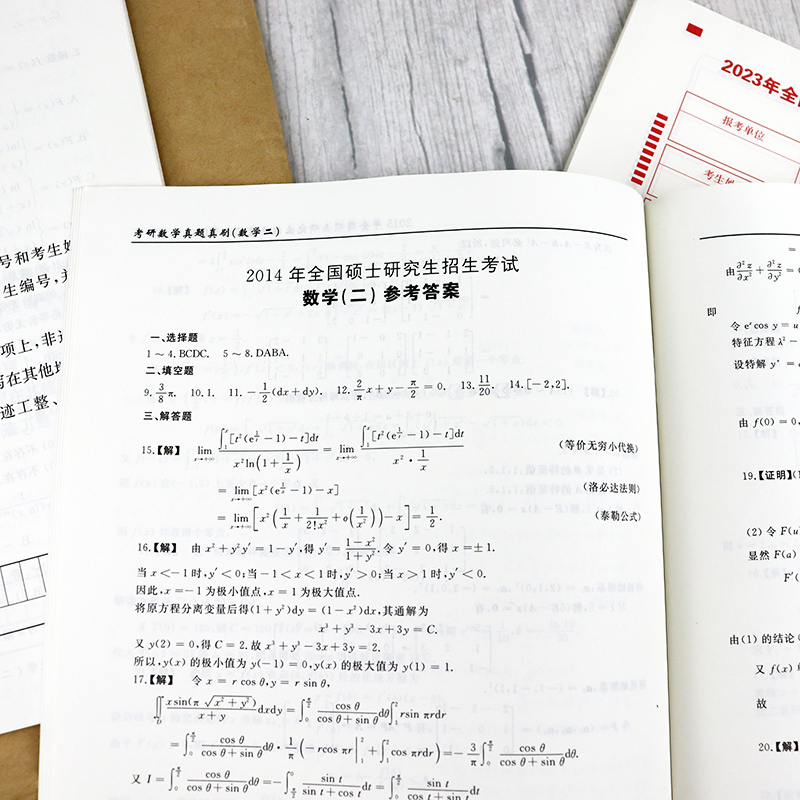 号和考生姓
生编号,并
项上,非选
写在其他地
迹工整、
2023年全国
报考单位
考生姓
考研数学真题真刷(数学二)
2014 年全国硕士研究生招生考试
数学(二) 参考答案
一、选择题
1～4. BCDC. 5～8. DABA.
二、填空题
9. 3/8 π. 10. 1. 11. −1/2 (dx+dy). 12. 2/π x+y−π/2=0. 13. 11/20. 14. [−2,2].
三、解答题
15.【解】 lim_{x→+∞} ∫_1^x [t²(e^{1/t}−1)−t]dt / x²ln(1+1/x) = lim_{x→+∞} ∫_1^x [t²(e^{1/t}−1)−t]dt / x²·1/x (等价无穷小代换)
= lim_{x→+∞} [x²(e^{1/x}−1)−x] (洛必达法则)
= lim_{x→+∞} [x²(1/x+1/2!x²+o(1/x²))−x] = 1/2. (泰勒公式)
16.【解】 由 x²+y²y′=1−y′,得 y′=1−x²/1+y². 令 y′=0,得 x=±1.
当 x<−1 时,y′<0;当−1<x<1 时,y′>0;当 x>1 时,y′<0.
因此,x=−1 为极小值点,x=1 为极大值点.
将原方程分离变量后得(1+y²)dy=(1−x²)dx,其通解为
x³+y³−3x+3y=C.
又 y(2)=0,得 C=2. 故 x³+y³−3x+3y=2.
所以,y(x) 的极小值为 y(−1)=0,y(x) 的极大值为 y(1)=1.
17.【解】 令 x=r cos θ,y=r sin θ,
∬_D x sin(π√(x²+y²))/x+y dxdy = ∫_0^{π/2} cos θ/cos θ+sin θ dθ ∫_1^2 r sin πr dr
= ∫_0^{π/2} cos θ/cos θ+sin θ dθ · 1/π (−r cos πr|_1^2 + ∫_1^2 cos πr dr) = −3/π ∫_0^{π/2} cos θ/cos θ+sin θ dθ.
又 I=∫_0^{π/2} cos θ/cos θ+sin θ dθ = −∫_{π/2}^0 sin t/sin t+cos t dt = ∫_0^{π/2} sin t/cos t+sin t dt
由 ∂²z/∂x² + ∂²z/∂y² =
即
令 eˣcos y=u
特征方程 λ²−
设特解 y*=
由 f(0)=0,
19.【证明】(
(2) 令 F(u
显然 F(a)
F′(
由(1) 的结论
又 f(x)
故
20.【解】